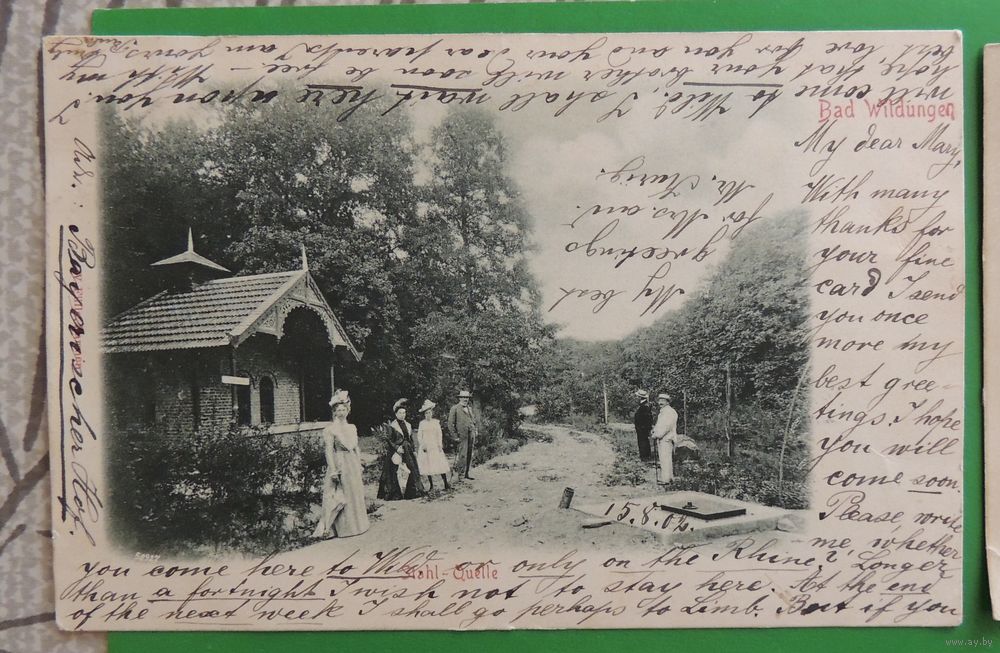 Bad Wildungen
My dear Mary,
With many
thanks for
your fine
card I send
you once
more my
best gree-
tings. I hope
you will
come soon.
Please, write
me, whether
you come here to Wild. or only on the Rhine? Longer
than a fortnight I wish not to stay here. At the end
of the next week I shall go perhaps to Limb. But if you
will come to Wild., I shall want here upon you. I
hope, that your brother will soon be free. With my
best love for you and your dear parents I am yours
Adr.: Bayerischer Hof.
My best
greetings
for Mrs. and
Mr.
15.8.02.
Stahl-Quelle
www.ay.by